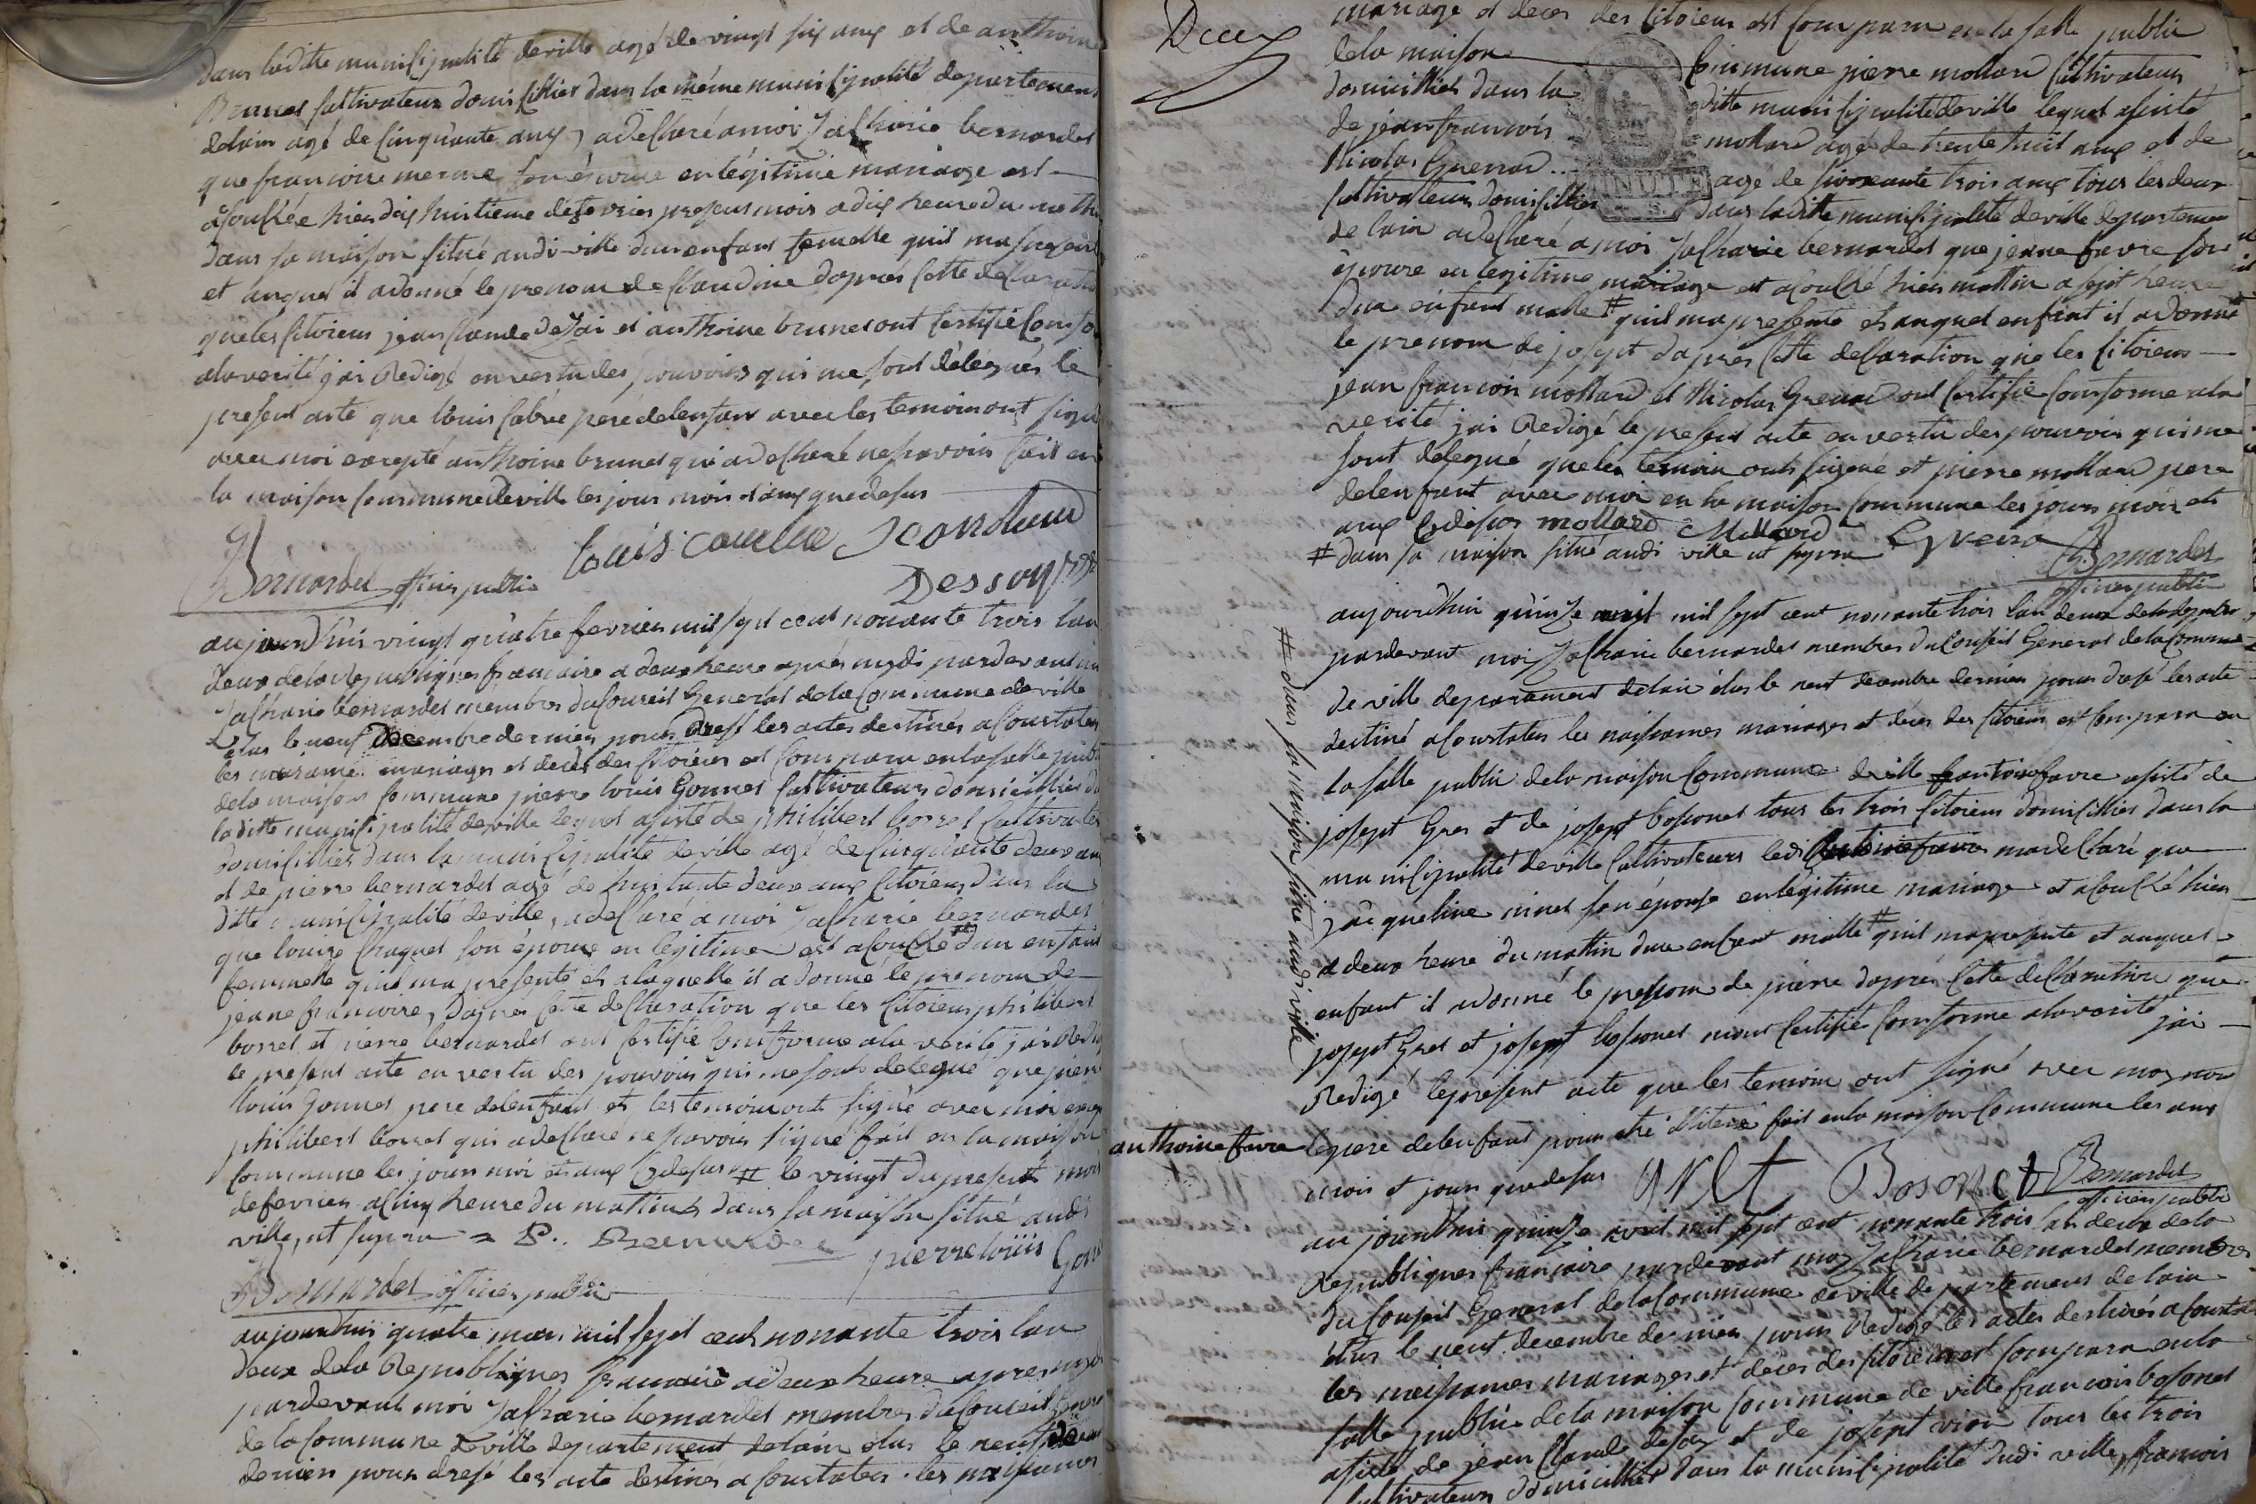 dans ladite municipalité deville agé de vingt six ans et de anthoine
Brunet cultivateur domicillier dans la même municipalité departement
delain agé de cinquante ans, a declaré a moi Zacharie bernardet
que francoise mermet son épouse en légitime mariage est
acouchée hier dix huitieme defevrier present mois a dix heure du matin
dans sa maison situé audi ville dun enfant femelle quil ma presenté
et auquel il a donné le prenom de claudine daprés cette declaration
que les citoiens jean claude et anthoine brunet ont certifié conforme
ala verité jai Redigé en vertu des pouvoirs qui me sont délegués le
present acte que louis pere delenfant avec les temoins ont signé
avec moi excepté anthoine brunet qui a declaré ne savoir fait en
la maison commune deville les jour mois et ans que desus
Bernardet officier public
louis jean claude
aujourdhui vingt quatre fevrier mil sept cent nonante trois lan
deux dela Republiques francaise a deux heure aprés mydi pardevant moi
Zacharie bernardet membres du Conseil General de la Commune deville
elus le neuf Decembre dernier pour dresé les actes destinés a constater
les naisances mariages et décés des citoiens est comparu en la salle public
dela maison commune pierre louis Gonnet cultivateur domicillier dans
la ditte municipalité deville lequel asisté de philibert borret cultivateur
domicillier dans la municipalité deville agé de cinquante deux ans
et de pierre bernardet agé de huitante deux ans citoiens dans la
ditte municipalité deville, a declaré a moi Zacharie bernardet
que louise son épouse en legitime est acouché # dun enfant
femmelle quil ma presenté et a laquelle il a donné le prenom de
jeane francoise, daprés cete declaration que les citoiens philibert
borret et pierre bernardet ont certifié conforme ala verité jai Redigé
le present acte en vertu des pouvoirs qui me sont delegué que pierre
louis Gonnet pere delenfant et les temoins ont signé avec moi excepté
philibert borret qui a declaré ne savoir signé fait en la maison
commune les jour moi et ans Cydesus # le vingt du present mois
defevrier a cinq heure du matin dans sa maison situé audi
ville, ut supra = P. Bernardet pierre louis Gonnet
Bernardet officier public
aujourdhui quatre mars mil sept cent nonante trois lan
deux dela Republiques francaise a deux heure apres mydi
pardevant moi Zacharie bernardet membres du Conseil General
de la Commune deville departement delain elus le neuf Decembre
dernier pour dresé les acte destinés a constater les naisances
Deux
mariage et deces des citoiens est comparu en la salle public
dela maison Commune pierre mollard cultivateur
domicillier dans la ditte municipalité deville lequel asisté
de jean francois mollard agé de trente huit ans et de
Nicolas Guerrad agé de soixante trois ans tous les deux
cultivateur domicillier dans ladite municipalité deville departement
MINUTE
de lain a declaré a moi Zacharie bernardet que jeanne favre son
epouse en legitime mariage est acouché hier mattin a sept heure
dun enfant malle # quil ma presenté et auquel enfant il a donné
le prenom de josept daprés cette declaration que les citoiens
jean francois mollard et Nicolas ont certifié conforme ala
verité jai Redigé le present acte en vertu des pouvoir qui me
sont delegué que les temoin ont signé et pierre mollard pere
delenfant avec moi en la maison commune les jour mois et
ans Cydesus mollard Mollard
# dans sa maison situé audi ville ut supra
Bernardet
officier public
aujourdhui quinze avril mil sept cent nonante trois lan deux dela Republique
pardevant moi Zacharie bernardet membres du Conseil General dela Commune
de ville departement delain élus le neuf decembre dernier pour dresé les acte
destiné a constater les naisances mariages et déces des citoiens est comparu en
la salle public dela maison Commune deville favre asisté de
josept Gret et de josept bosonet tous les trois citoiens domicillier dans la
municipalité deville cultivateurs ledi ma declaré que
jacqueline minet son épouse en légitime mariage et acouché hier
a deux heure du mattin dun enfant malle # quil ma presenté et auquel
enfant il a donné le prenom de pierre daprés cette declaration que
josept Gret et josept bosonet mont certifié conforme ala verité jai
Redigé le present acte que les temoin ont signé avec moy non
le pere delenfant pour être fait en la maison Commune les ans
mois et jour que desus gret Bosonet Bernardet
officier public
# dans sa maison situé audi ville
anthoine favre
aujourdhui quinze avril mil sept cent nonante trois lan deux dela
Republiques francaise pardevant moy Zacharie bernardet membres
du Conseil General dela Commune deville departement delain
élus le neuf decembre dernier pour Redigé les actes destinés a constater
les naisances mariages et déces des citoiens est comparu en la
salle public dela maison Commune de ville francois bosonet
asisté de jean claude et de josept tous les trois
cultivateurs domicillier dans la municipalité dudi ville, francois